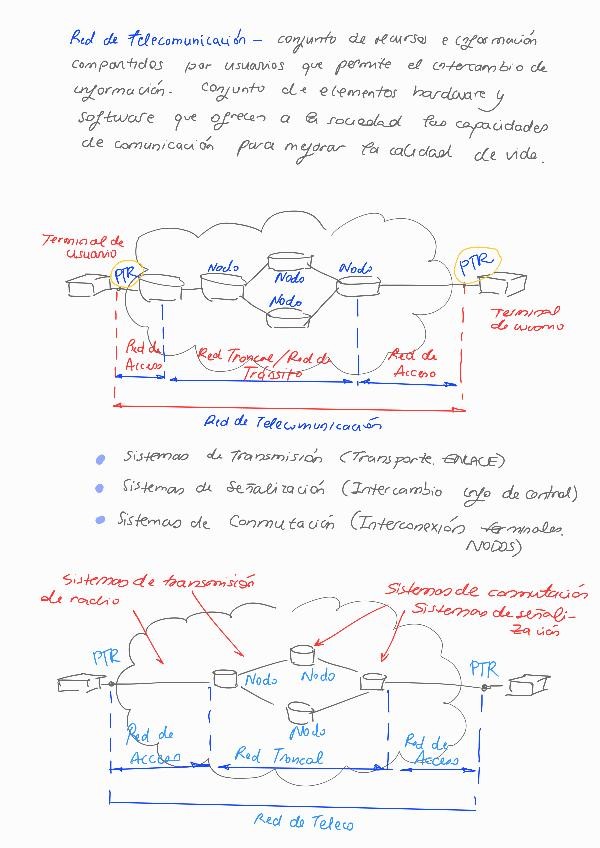 Red de Telecomunicación – conjunto de recursos e información
compartidos por usuarios que permite el intercambio de
información. Conjunto de elementos hardware y
software que ofrecen a la sociedad las capacidades
de comunicación para mejorar la calidad de vida.
Terminal de
usuario
PTR
Nodo
Nodo
Nodo
Nodo
PTR
Terminal
de usuario
Red de
Acceso
Red Troncal/Red de
Tránsito
Red de
Acceso
Red de Telecomunicación
Sistemas de Transmisión (Transporte. ENLACE)
Sistemas de Señalización (Intercambio info de control)
Sistemas de Conmutación (Interconexión terminales.
NODOS)
Sistemas de transmisión
de radio
Sistemas de conmutación
Sistemas de señali-
zación
PTR
Nodo
Nodo
Nodo
PTR
Red de
Acceso
Red Troncal
Red de
Acceso
Red de Teleco